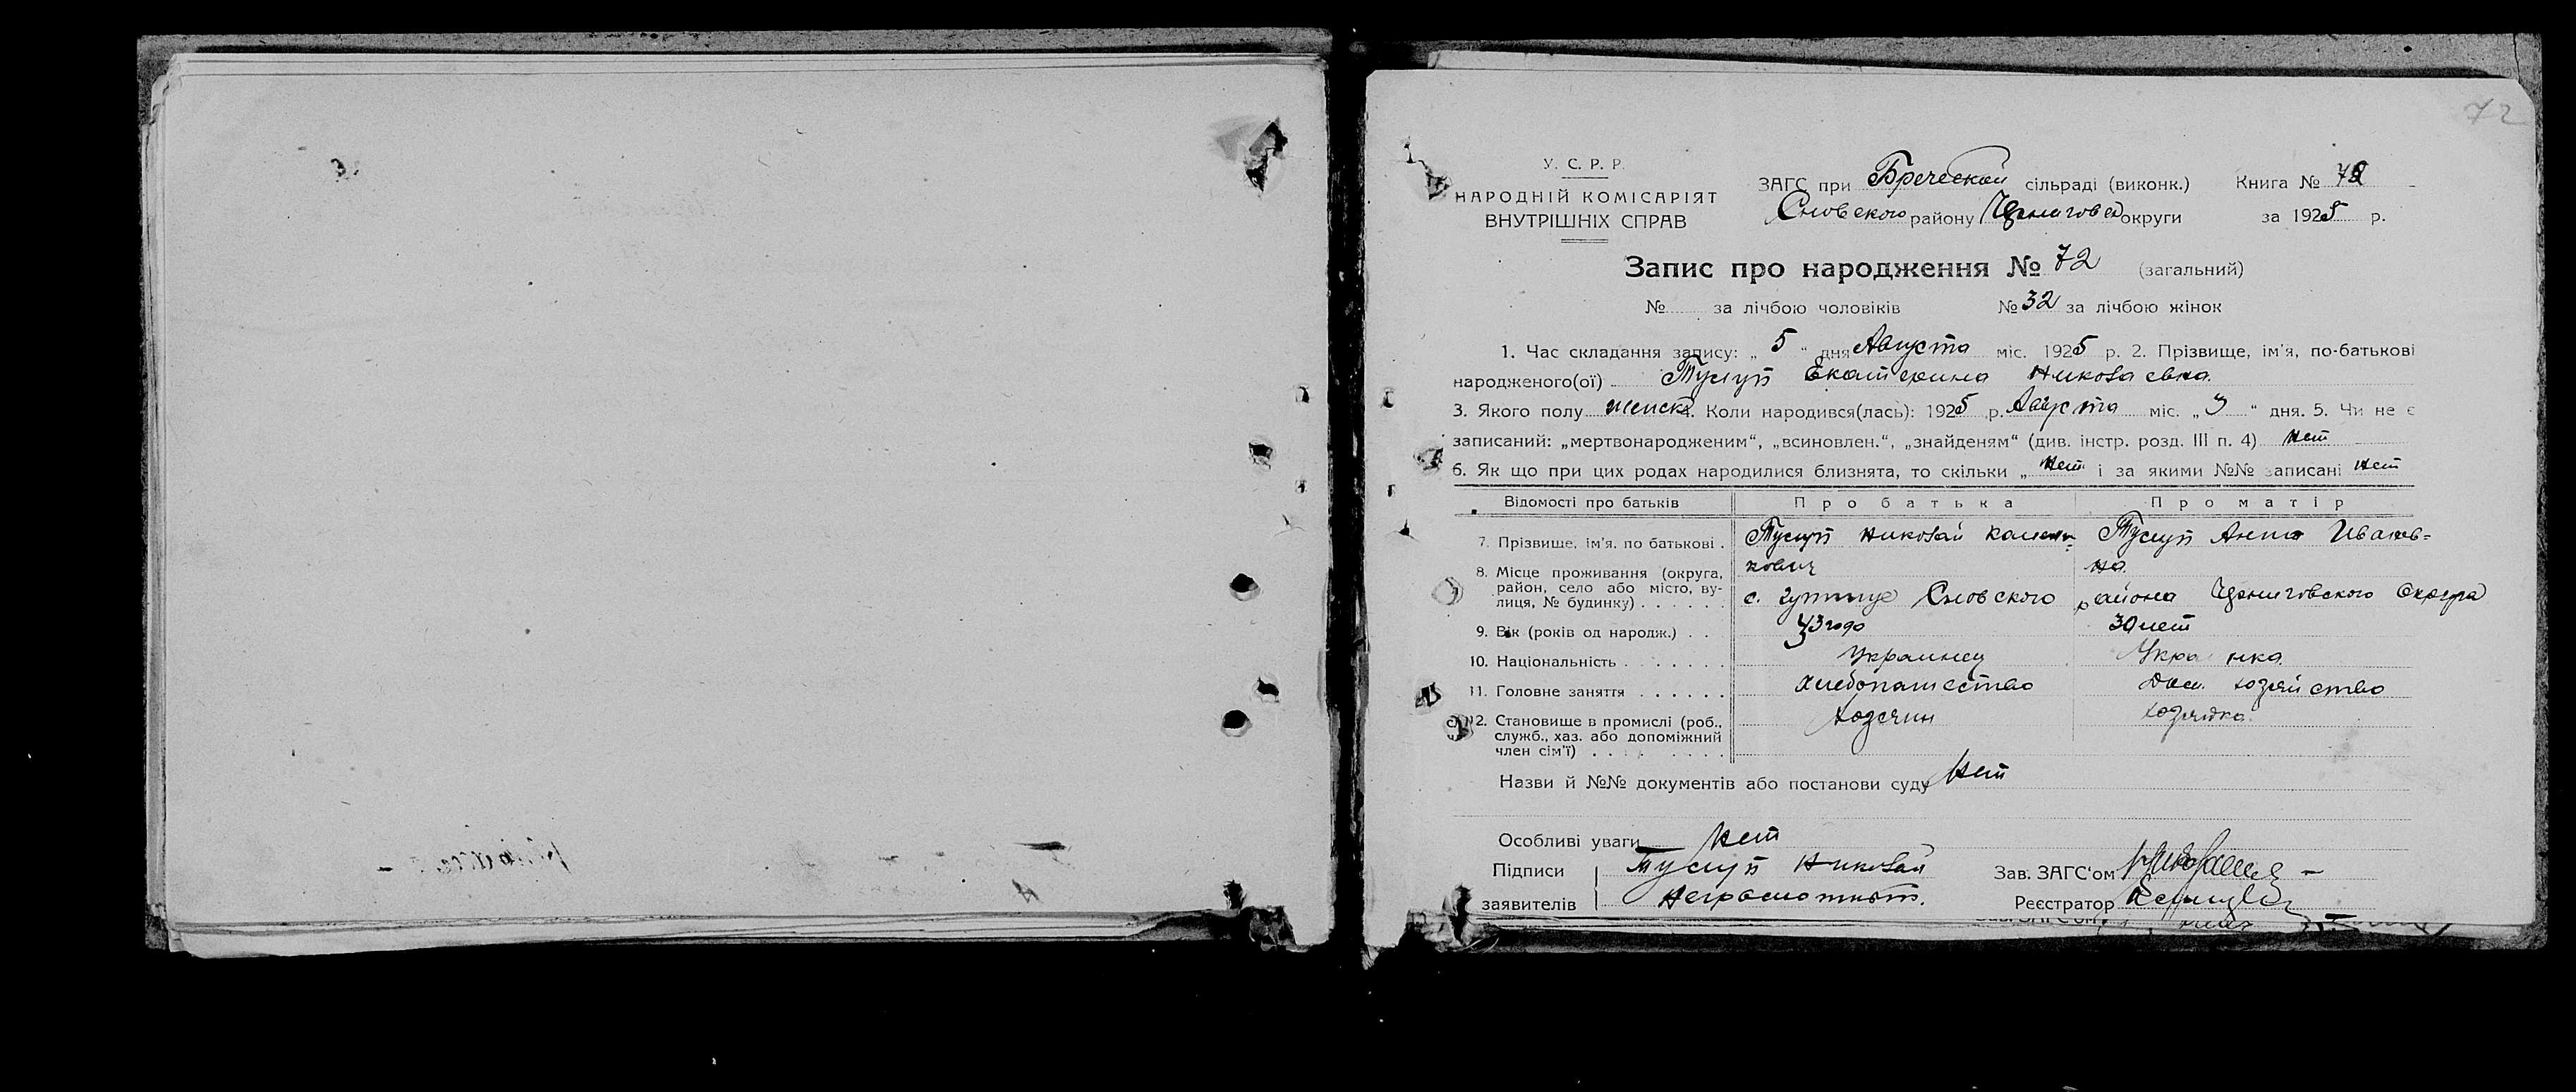 72
У. С. Р. Р.
НАРОДНІЙ КОМІСАРІЯТ
ВНУТРІШНІХ СПРАВ
ЗАГС при Бреческой сільраді (виконк.) Книга №
Сновского району округи за 1925 р.
Запис про народження № 72 (загальний)
№ за лічбою чоловіків № 32 за лічбою жінок
1. Час складання запису: „ 5 “ дня Августа міс. 1925 р. 2. Прізвище, ім'я, по-батькові
народженого(ої) Тусуп Екатерина Николаевна.
3. Якого полу женск 4. Коли народився(лась): 1925 р. Августа міс. „ 3 “ дня. 5. Чи не є
записаний: „мертвонародженим“, „всиновлен.“, „знайденям“ (див. інстр. розд. III п. 4) нет
6. Як що при цих родах народилися близнята, то скільки „ нет і за якими №№ записані нет
Відомості про батьків Про батька Про матір
7. Прізвище, ім'я, по батькові . Тусуп Николай Тусуп Анна Иванов=
на.
8. Місце проживання (округа,
район, село або місто, ву-
лиця, № будинку) . . . . . . с. Сновского района Черниговского Округа
9. Вік (років од народж.) . . 43 года 39 лет
10. Національність . . . . . . . Украинец Укра нка.
11. Головне заняття . . . . . . хлебопашество Дом. хозяйство
12. Становище в промислі (роб., Хозяин хозяйка.
служб., хаз. або допоміжний
член сім'ї) . . . . . . . . .
Назви й №№ документів або постанови суду Нет
Особливі уваги Нет
Підписи Тусуп Николай Зав. ЗАГС'ом
заявителів Неграмотный. Реєстратор